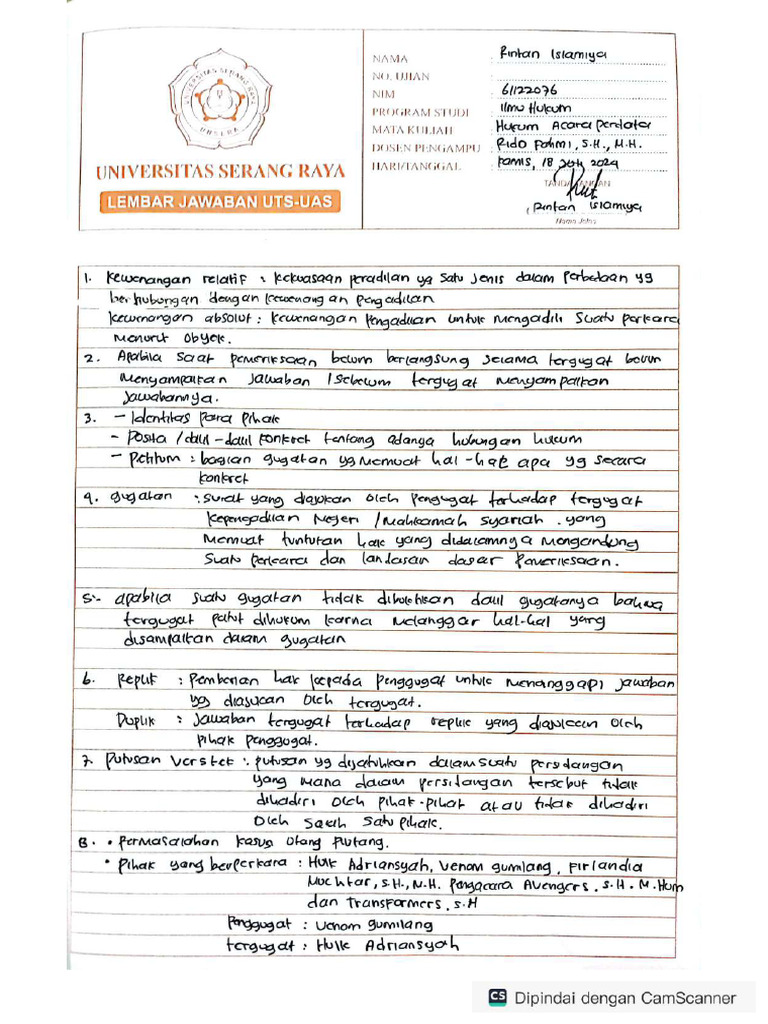 UNIVERSITAS SERANG RAYA
UNSERA
UNIVERSITAS SERANG RAYA
LEMBAR JAWABAN UTS-UAS
NAMA : Rintan Islamiya
NO. UJIAN :
NIM : 61122076
PROGRAM STUDI : Ilmu Hukum
MATA KULIAH : Hukum Acara Perdata
DOSEN PENGAMPU : Rido Fahmi, S.H., M.H.
HARI/TANGGAL : Kamis, 18 2024
TANDA TANGAN
Rintan Islamiya
Nama Jelas
1. Kewenangan relatif : kekuasaan peradilan yg satu jenis dalam perbedaan yg
berhubungan dengan kewenangan pengadilan
Kewenangan absolut : kewenangan pengadilan untuk mengadili suatu perkara
menurut obyek.
2. Apabila saat pemeriksaan belum berlangsung selama tergugat belum
menyampaikan jawaban / sebelum tergugat menyampaikan
jawabannya.
3. - Identitas para pihak
- Posita / dalil-dalil konkret tentang adanya hubungan hukum
- Petitum : bagian gugatan yg memuat hal-hal apa yg secara
konkret
4. gugatan : surat yang diajukan oleh penggugat terhadap tergugat
kepengadilan Negeri / Mahkamah syariah . yang
memuat tuntutan hak yang didalamnya mengandung
suatu perkara dan landasan dasar pemeriksaan.
5. apabila suatu gugatan tidak dibuktikan dalil gugatanya bahwa
tergugat patut dihukum karna melanggar hal-hal yang
disampaikan dalam gugatan
6. Replik : Pemberian hak kepada penggugat untuk menanggapi jawaban
yg diajukan oleh tergugat.
Duplik : jawaban tergugat terhadap replik yang diajukan oleh
pihak penggugat.
7. Putusan verstek : putusan yg dijatuhkan dalam suatu persidangan
yang mana dalam persidangan tersebut tidak
dihadiri oleh pihak-pihak atau tidak dihadiri
oleh salah satu pihak.
8. • Permasalahan kasus utang piutang.
• Pihak yang berperkara : Hulk Adriansyah, Venom gumilang, Firlandia
Muchtar, S.H., M.H. Pengacara Avengers, S.H. M.Hum
dan transformers, S.H
Penggugat : Venom gumilang
tergugat : Hulk Adriansyah
CS Dipindai dengan CamScanner